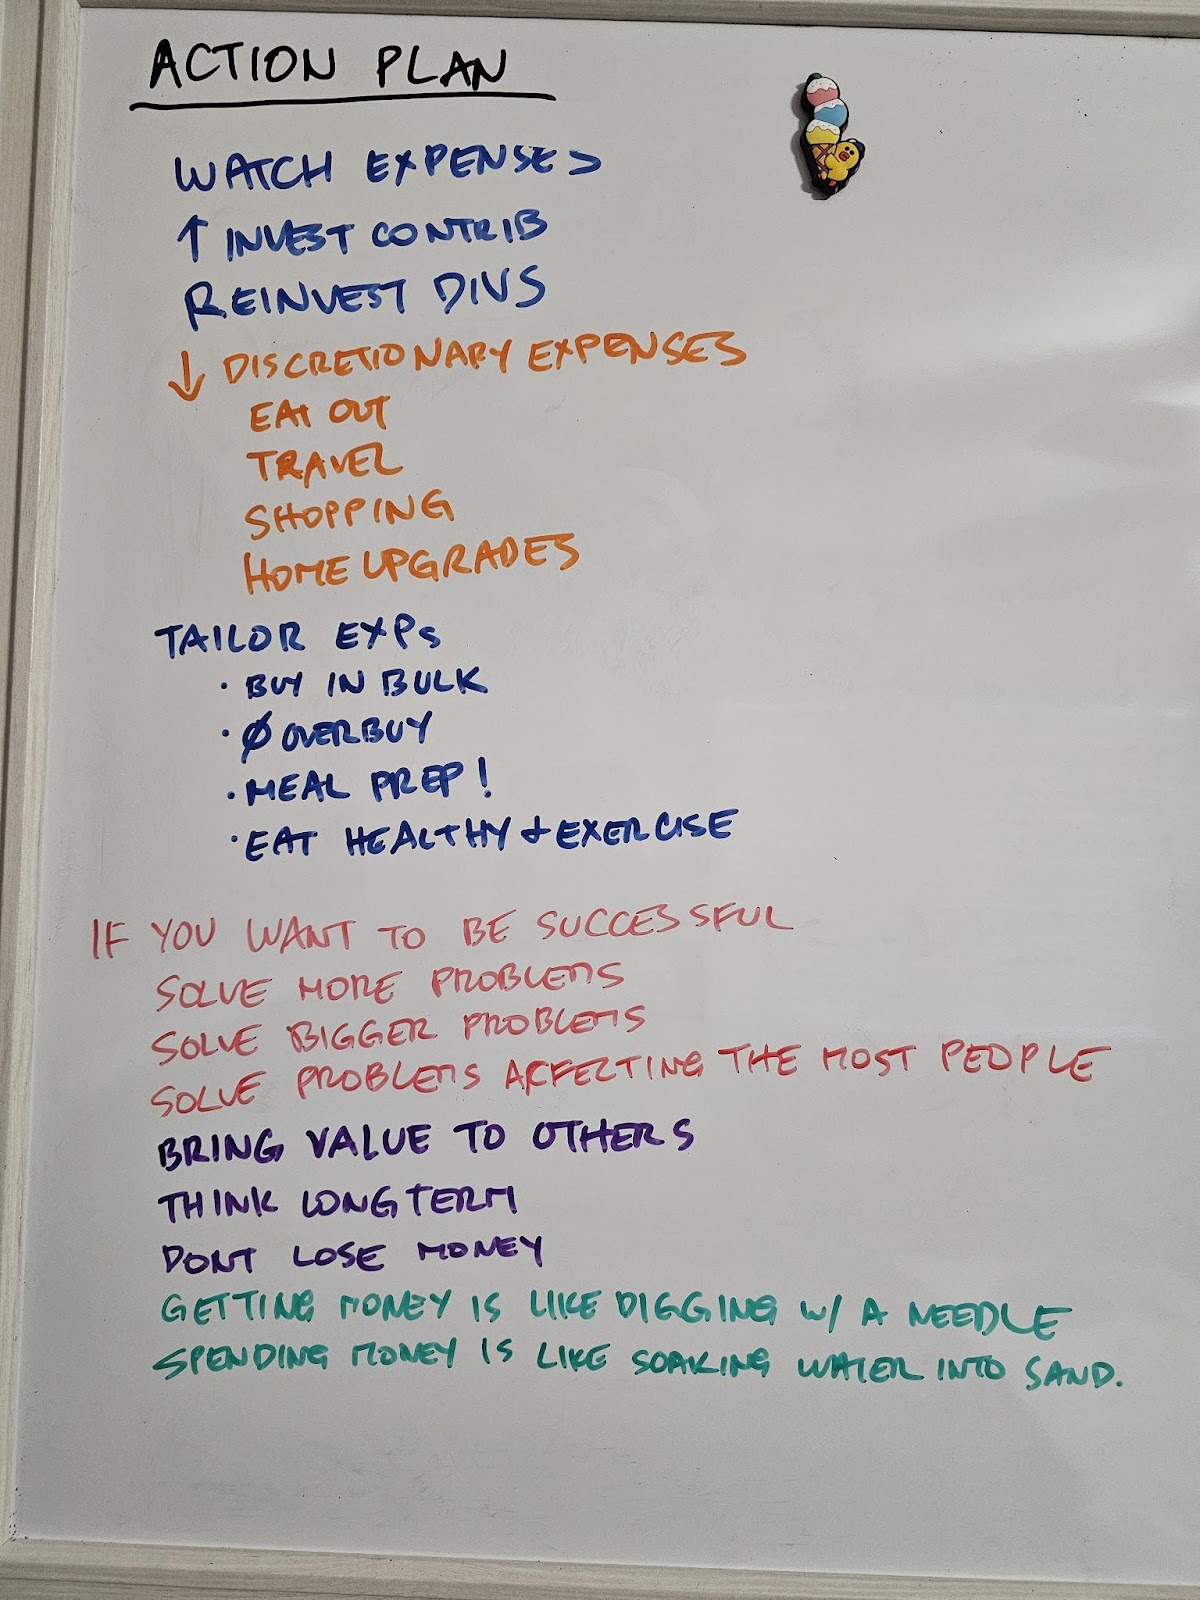 ACTION PLAN
WATCH EXPENSES
↑ INVEST CONTRIB
REINVEST DIVS
↓ DISCRETIONARY EXPENSES
EAT OUT
TRAVEL
SHOPPING
HOME UPGRADES
TAILOR EXPs
· BUY IN BULK
· Ø OVERBUY
· MEAL PREP!
· EAT HEALTHY + EXERCISE
IF YOU WANT TO BE SUCCESSFUL
SOLVE MORE PROBLEMS
SOLVE BIGGER PROBLEMS
SOLVE PROBLEMS AFFECTING THE MOST PEOPLE
BRING VALUE TO OTHERS
THINK LONG TERM
DONT LOSE MONEY
GETTING MONEY IS LIKE DIGGING W/ A NEEDLE
SPENDING MONEY IS LIKE SOAKING WATER INTO SAND.